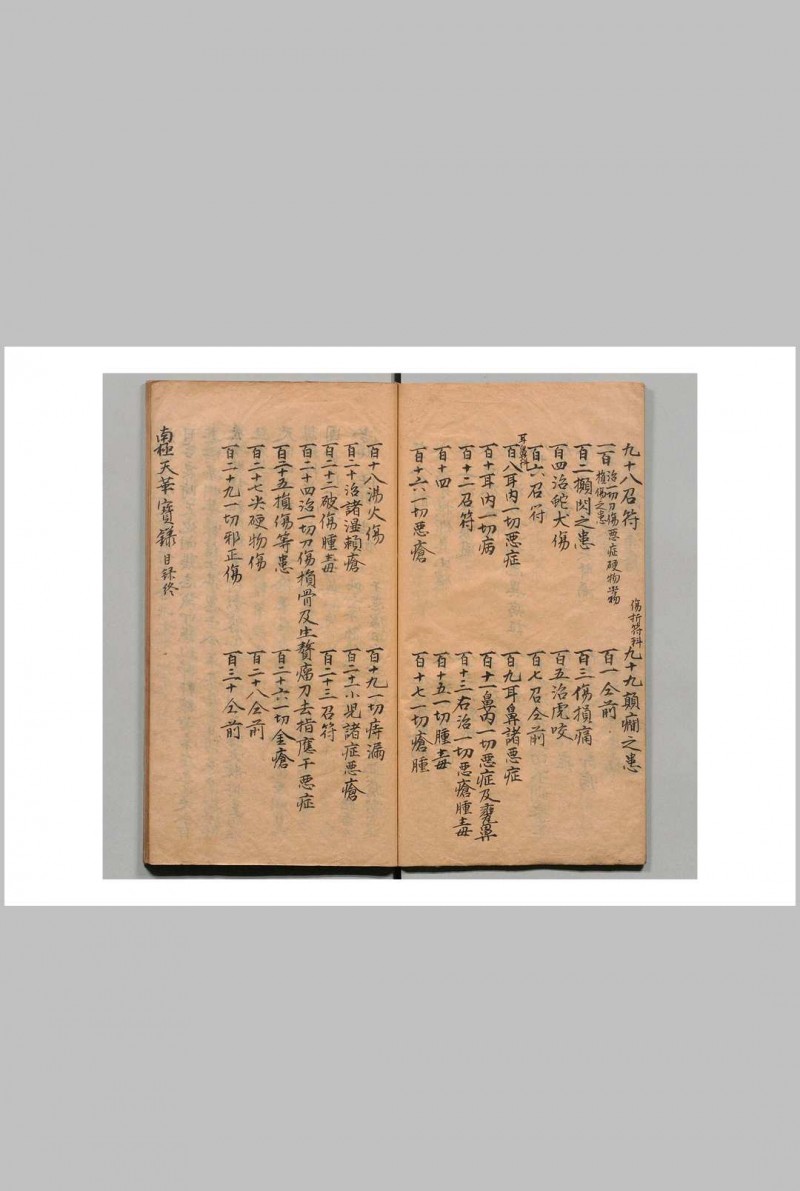 九十八召符
九十九顛癇之患
一百治一切刀傷惡症硬物
損傷之患
傷折符科
百一仝前
百二攧閃之患
百三傷損痛
百四治蛇犬傷
百五治虎咬
百六召符
百七召仝前
百八耳內一切惡症
百九耳鼻諸惡症
百十耳內一切病
百十一鼻內一切惡症及齆鼻
百十二召符
百十三右治一切惡瘡腫毒
百十四
百十五一切腫毒
百十六一切惡瘡
百十七一切瘡腫
百十八湯火傷
百十九一切痔漏
百二十治諸濕賴瘡
百二十一小児諸症惡瘡
百二十二破傷腫毒
百二十三召符
百二十四治一切刀傷損骨及生贅瘤刀去指應干惡症
百二十五損傷等患
百二十六一切金瘡
百二十七尖硬物傷
百二十八仝前
百二十九一切邪正傷
百三十仝前
南極天華寶錄目録终